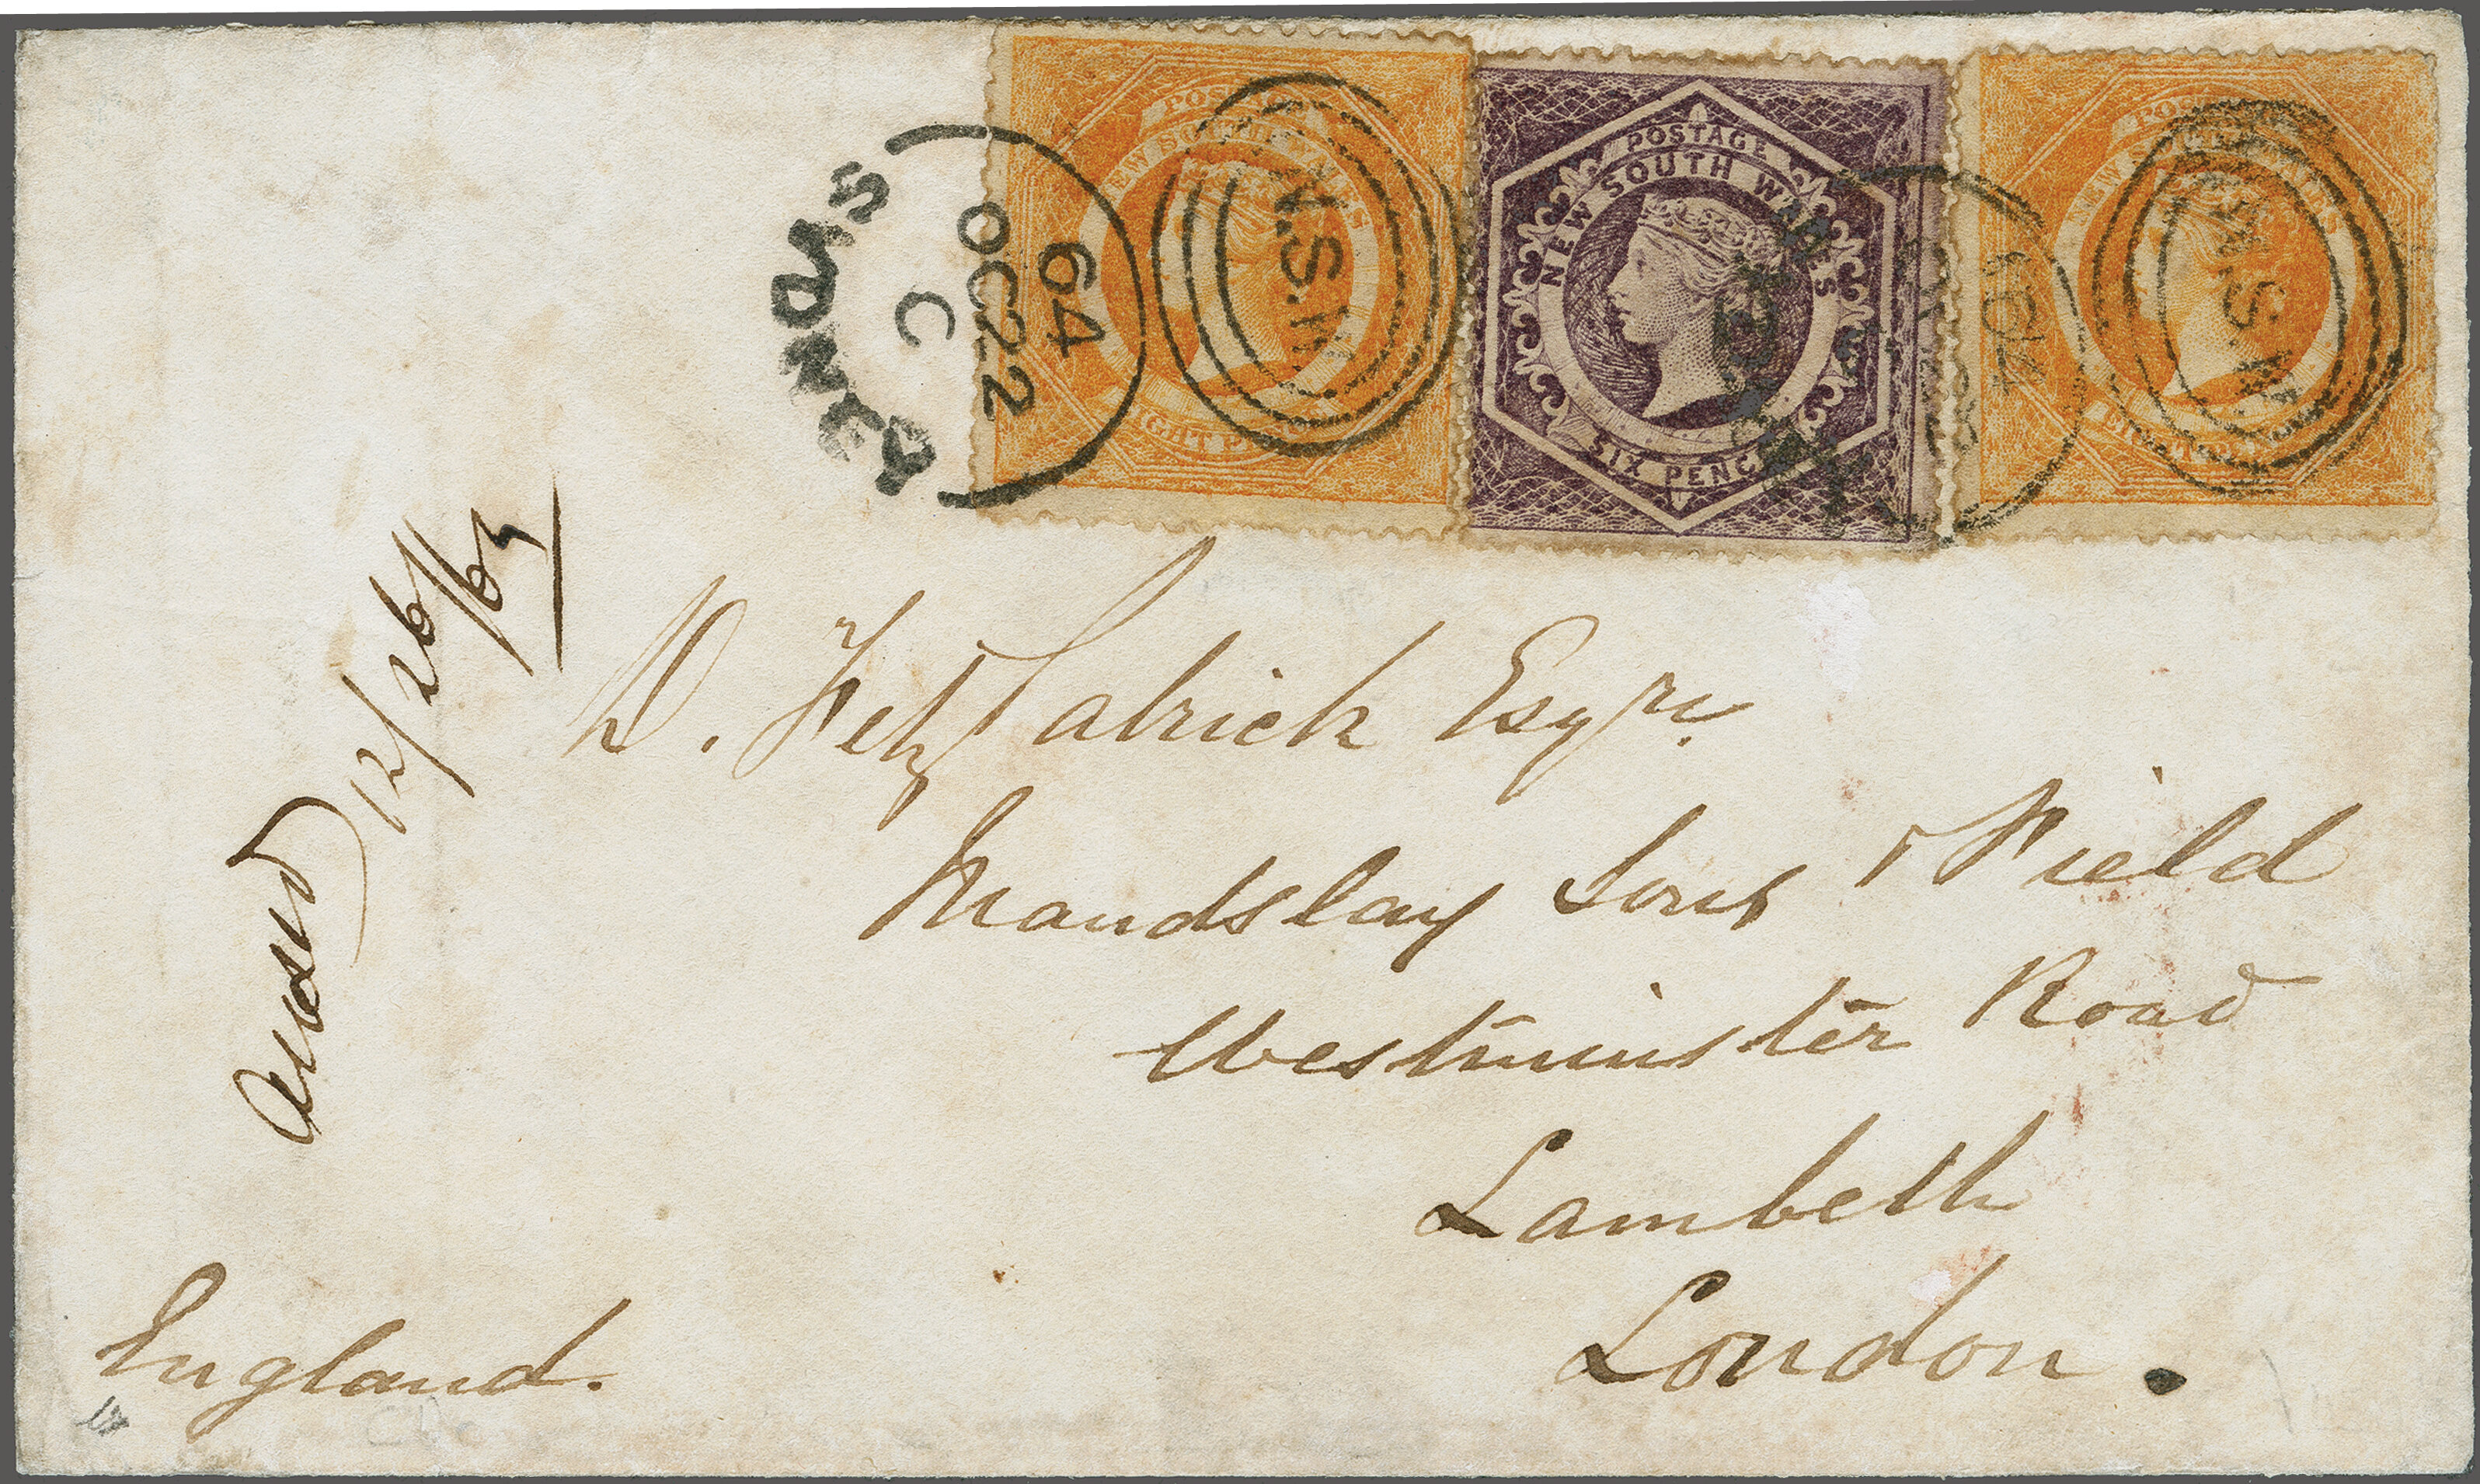 POSTAGE
NEW SOUTH WALES
EIGHT PENCE
N.S.W.
SYDNEY
C
OC 22
64
POSTAGE
NEW SOUTH WALES
SIX PENCE
POSTAGE
NEW SOUTH WALES
N.S.W.
64
D. FitzPatrick Esqre.
Maudslay Sons & Field
Westminster Road
Lambeth
London.
England.
Answd 12/26/64